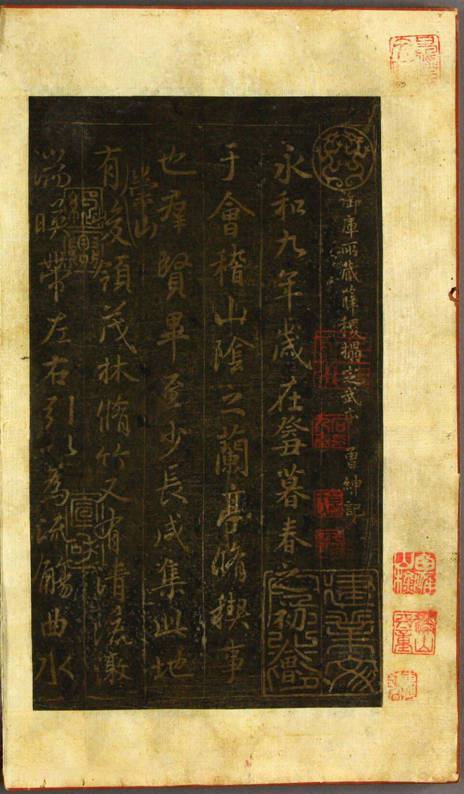 御庫所藏薛稷搨定武 紳記
永和九年歲在癸丑暮春之初會
于會稽山陰之蘭亭脩稧事
也羣賢畢至少長咸集此地
崇山
有峻領茂林脩竹又有清流激
湍暎帶左右引以為流觴曲水